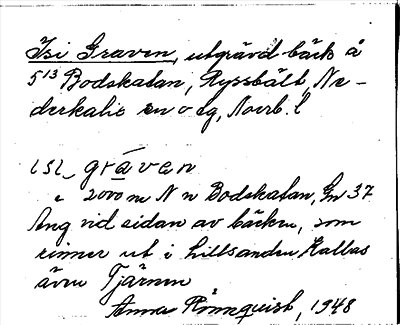 Isi Graven, utgrävd bäck å
5¹³ Bodskatan, Ryssbält, Ne-
derkalix sn o tg, Norrb. l
ısı_ gräven
c 2000 m N n Bodskatan, Gn 37
Äng vid sidan av bäcken, som
rinner ut i Lillsanden Kallas
även Tjärnen
Anna Rönnquist, 1948